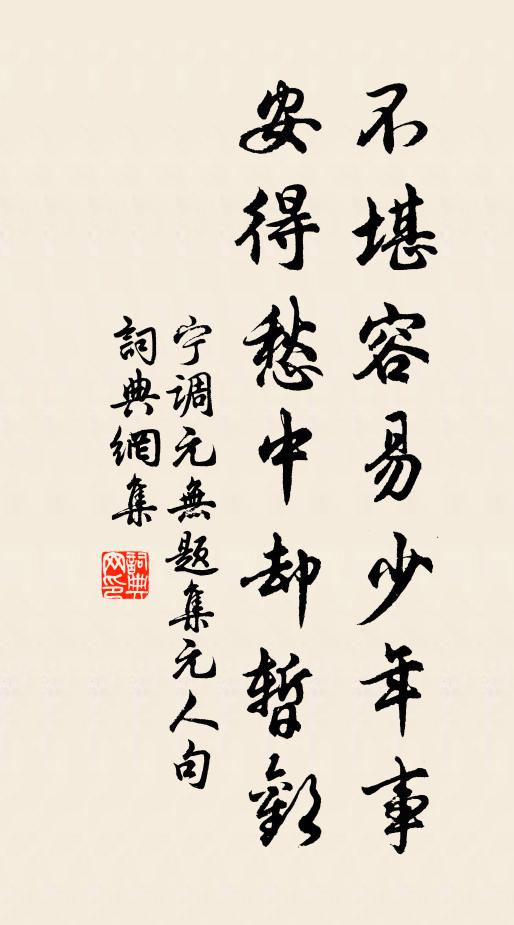 不堪容易少年事
安得愁中却暫歡
宁調元無题集元人句
詞典網集
詞典網印